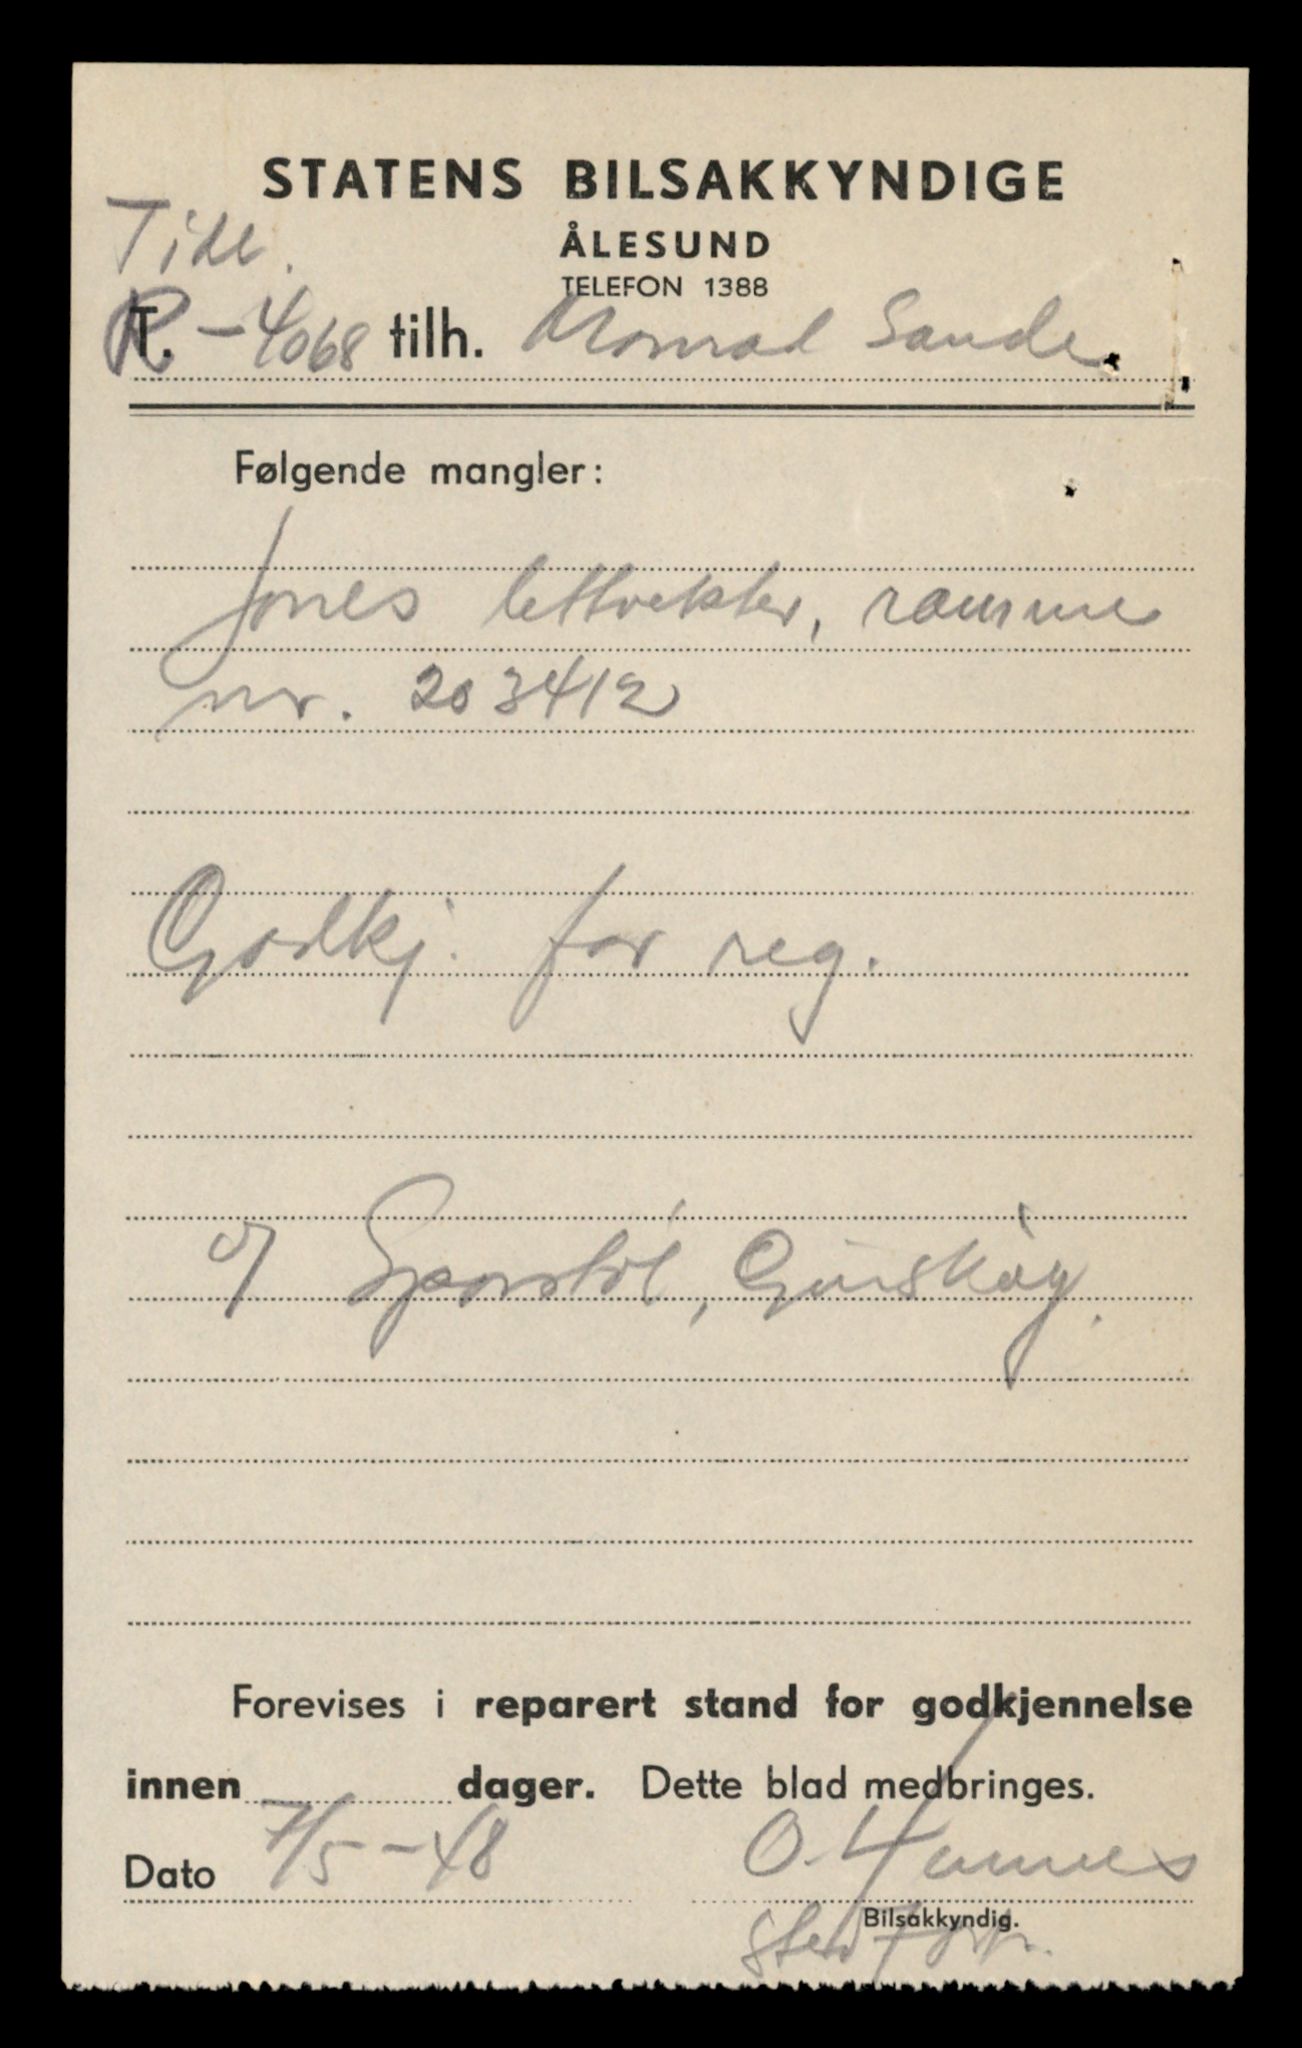 STATENS BILSAKKYNDIGE
ÅLESUND
TELEFON 1388
Tidl.
R-4068 tilh. Konrad Sande.
Følgende mangler:
Jones lettvekter, ramme
nr. 203412
Godkj. for reg.
Gurskøy.
Forevises i reparert stand for godkjennelse
innen dager. Dette blad medbringes.
Dato 7/5-48 O.
Bilsakkyndig.